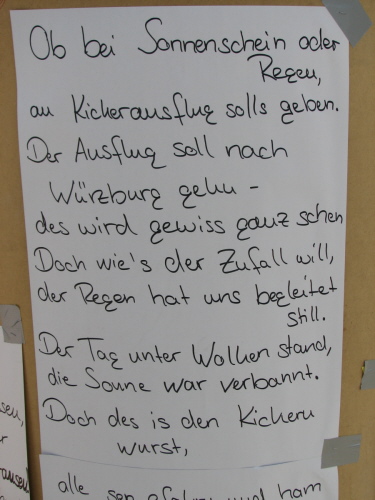 Ob bei Sonnenschein oder
Regen,
an Kickerausflug solls geben.
Der Ausflug soll nach
Würzburg gehn -
des wird gewiss ganz schen
Doch wie's der Zufall will,
der Regen hat uns begleitet
still.
Der Tag unter Wolken stand,
die Sonne war verbannt.
Doch des is den Kickern
wurst,
alle